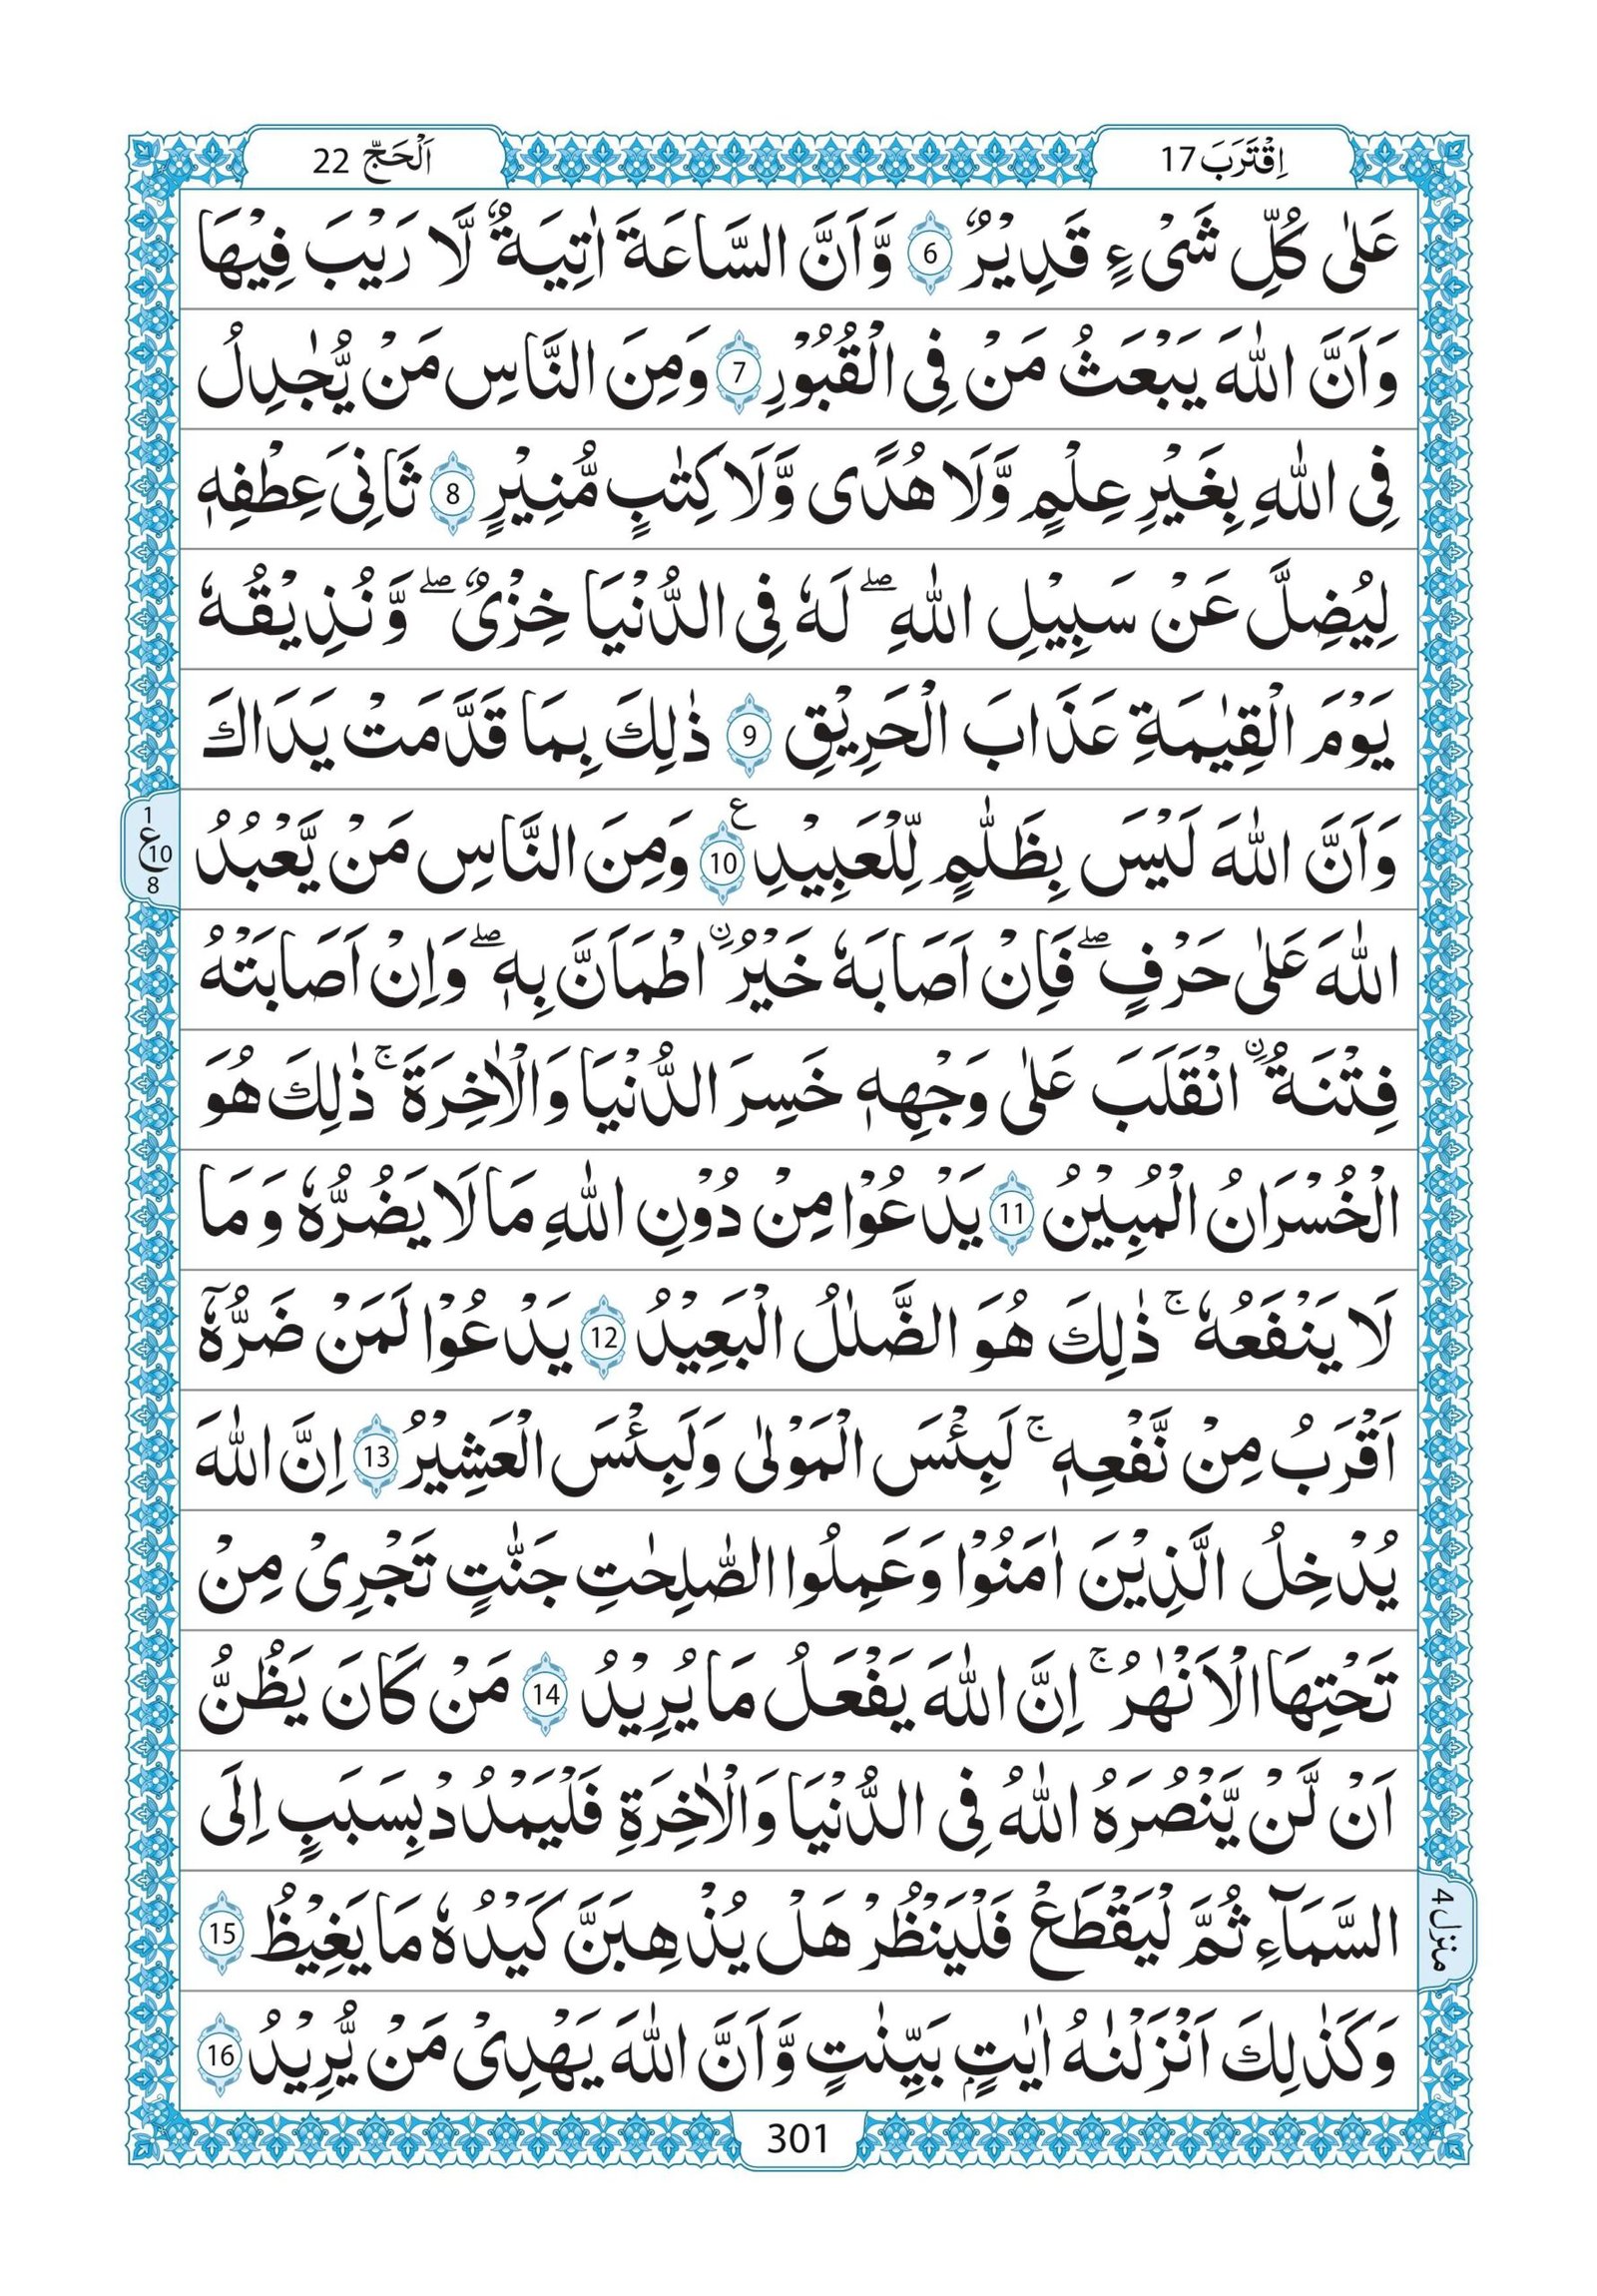 اِقْتَرَبَ 17
اَلْحَجّ 22
عَلٰى كُلِّ شَىْءٍ قَدِيْرٌۙ 6 وَّاَنَّ السَّاعَةَ اٰتِيَةٌ لَّا رَيْبَ فِيْهَا
وَاَنَّ اللّٰهَ يَبْعَثُ مَنْ فِى الْقُبُوْرِ 7 وَمِنَ النَّاسِ مَنْ يُّجٰدِلُ
فِى اللّٰهِ بِغَيْرِ عِلْمٍ وَّلَا هُدًى وَّلَا كِتٰبٍ مُّنِيْرٍ 8 ثَانِىَ عِطْفِهٖ
لِيُضِلَّ عَنْ سَبِيْلِ اللّٰهِ ۖ لَهٗ فِى الدُّنْيَا خِزْىٌ ۖ وَّنُذِيْقُهٗ
يَوْمَ الْقِيٰمَةِ عَذَابَ الْحَرِيْقِ 9 ذٰلِكَ بِمَا قَدَّمَتْ يَدَاكَ
وَاَنَّ اللّٰهَ لَيْسَ بِظَلّٰمٍ لِّلْعَبِيْدِ 10 ع وَمِنَ النَّاسِ مَنْ يَّعْبُدُ
1 ع 10 8
اللّٰهَ عَلٰى حَرْفٍ ۖ فَاِنْ اَصَابَهٗ خَيْرُ ۨ اطْمَاَنَّ بِهٖ ۖ وَاِنْ اَصَابَتْهُ
فِتْنَةُ ۨ انْقَلَبَ عَلٰى وَجْهِهٖ خَسِرَ الدُّنْيَا وَالْاٰخِرَةَ ۚ ذٰلِكَ هُوَ
الْخُسْرَانُ الْمُبِيْنُ 11 يَدْعُوْا مِنْ دُوْنِ اللّٰهِ مَا لَا يَضُرُّهٗ وَمَا
لَا يَنْفَعُهٗ ۚ ذٰلِكَ هُوَ الضَّلٰلُ الْبَعِيْدُ 12 يَدْعُوْا لَمَنْ ضَرُّهٗۤ
اَقْرَبُ مِنْ نَّفْعِهٖ ۚ لَبِئْسَ الْمَوْلٰى وَلَبِئْسَ الْعَشِيْرُ 13 اِنَّ اللّٰهَ
يُدْخِلُ الَّذِيْنَ اٰمَنُوْا وَعَمِلُوا الصّٰلِحٰتِ جَنّٰتٍ تَجْرِىْ مِنْ
تَحْتِهَا الْاَنْهٰرُ ۚ اِنَّ اللّٰهَ يَفْعَلُ مَا يُرِيْدُ 14 مَنْ كَانَ يَظُنُّ
اَنْ لَّنْ يَّنْصُرَهُ اللّٰهُ فِى الدُّنْيَا وَالْاٰخِرَةِ فَلْيَمْدُدْ بِسَبَبٍ اِلَى
السَّمَآءِ ثُمَّ لْيَقْطَعْ فَلْيَنْظُرْ هَلْ يُذْهِبَنَّ كَيْدُهٗ مَا يَغِيْظُ 15
منزل 4
وَكَذٰلِكَ اَنْزَلْنٰهُ اٰيٰتٍۭ بَيِّنٰتٍ وَّاَنَّ اللّٰهَ يَهْدِىْ مَنْ يُّرِيْدُ 16
301